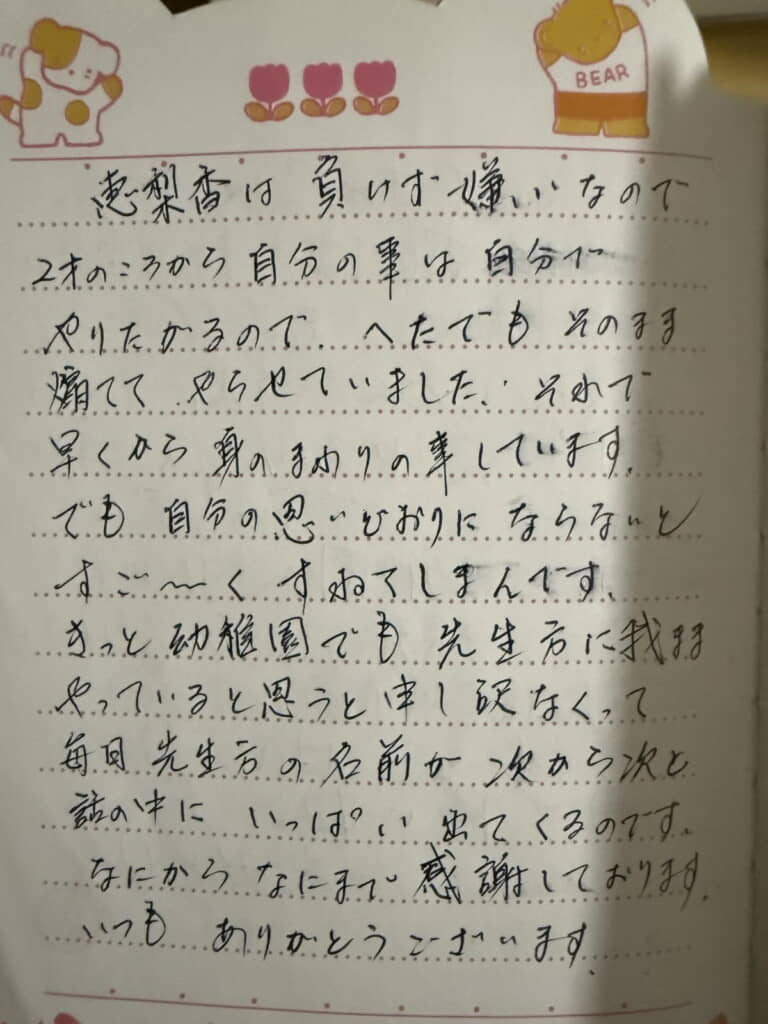 BEAR
恵梨香は 負けず嫌いなので
2才のころから自分の事は 自分で
やりたがるので、へたでも そのまま
煽てて やらせていました。それで
早くから 身のまわりの事しています。
でも 自分の思いどおりに ならないと
すご〜く すねてしまんです。
きっと 幼稚園でも 先生方に我まま
やっていると思うと申し訳なくって
毎日 先生方の名前が 次から次と
話の中に いっぱい 出てくるのです。
なにから なにまで 感謝しております。
いつも ありがとうございます。